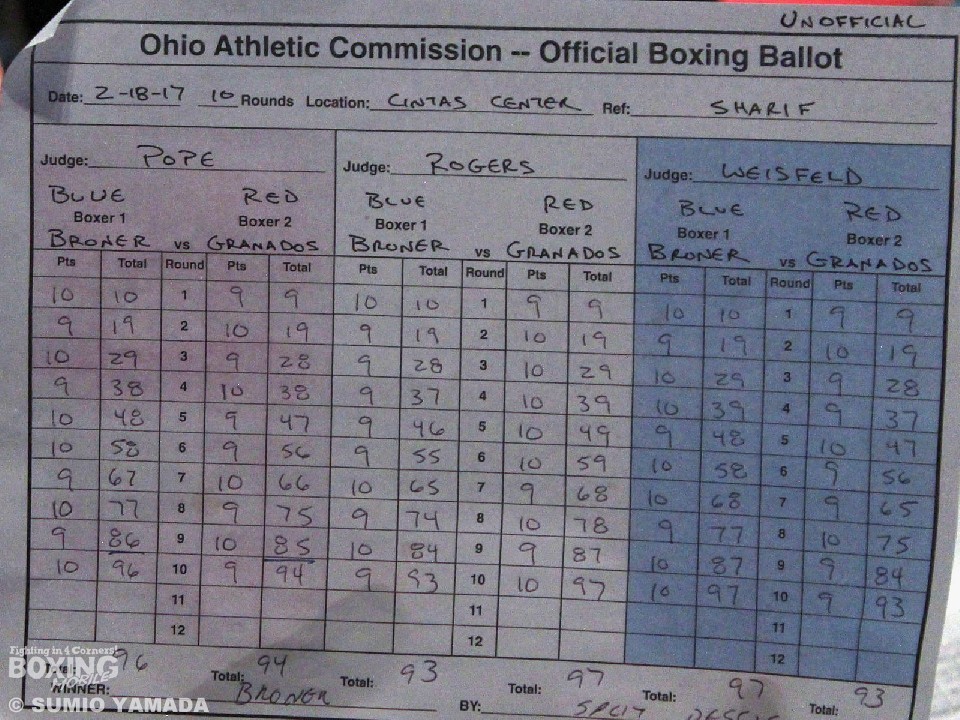 UNOFFICIAL
Ohio Athletic Commission -- Official Boxing Ballot
Date: 2-18-17 10 Rounds Location: CINTAS CENTER Ref: SHARIF
Judge: POPE Judge: ROGERS Judge: WEISFELD
BLUE RED BLUE RED BLUE RED
Boxer 1 Boxer 2 Boxer 1 Boxer 2 Boxer 1 Boxer 2
BRONER vs GRANADOS BRONER vs GRANADOS BRONER vs GRANADOS
Pts Total Round Pts Total Pts Total Round Pts Total Pts Total Round Pts Total
10 10 1 9 9 10 10 1 9 9 10 10 1 9 9
9 19 2 10 19 9 19 2 10 19 9 19 2 10 19
10 29 3 9 28 9 28 3 10 29 10 29 3 9 28
9 38 4 10 38 9 37 4 10 39 10 39 4 9 37
10 48 5 9 47 9 46 5 10 49 9 48 5 10 47
10 58 6 9 56 9 55 6 10 59 10 58 6 9 56
9 67 7 10 66 10 65 7 9 68 10 68 7 9 65
10 77 8 9 75 9 74 8 10 78 9 77 8 10 75
9 86 9 10 85 10 84 9 9 87 10 87 9 9 84
10 96 10 9 94 9 93 10 10 97 10 97 10 9 93
11 11 11
12 12 12
Fighting in 4 Corners!
BOXING
MOBILE
Total: 96 Total: 94 Total: 93 Total: 97 Total: 97 Total: 93
WINNER: BRONER BY: SPLIT
© SUMIO YAMADA